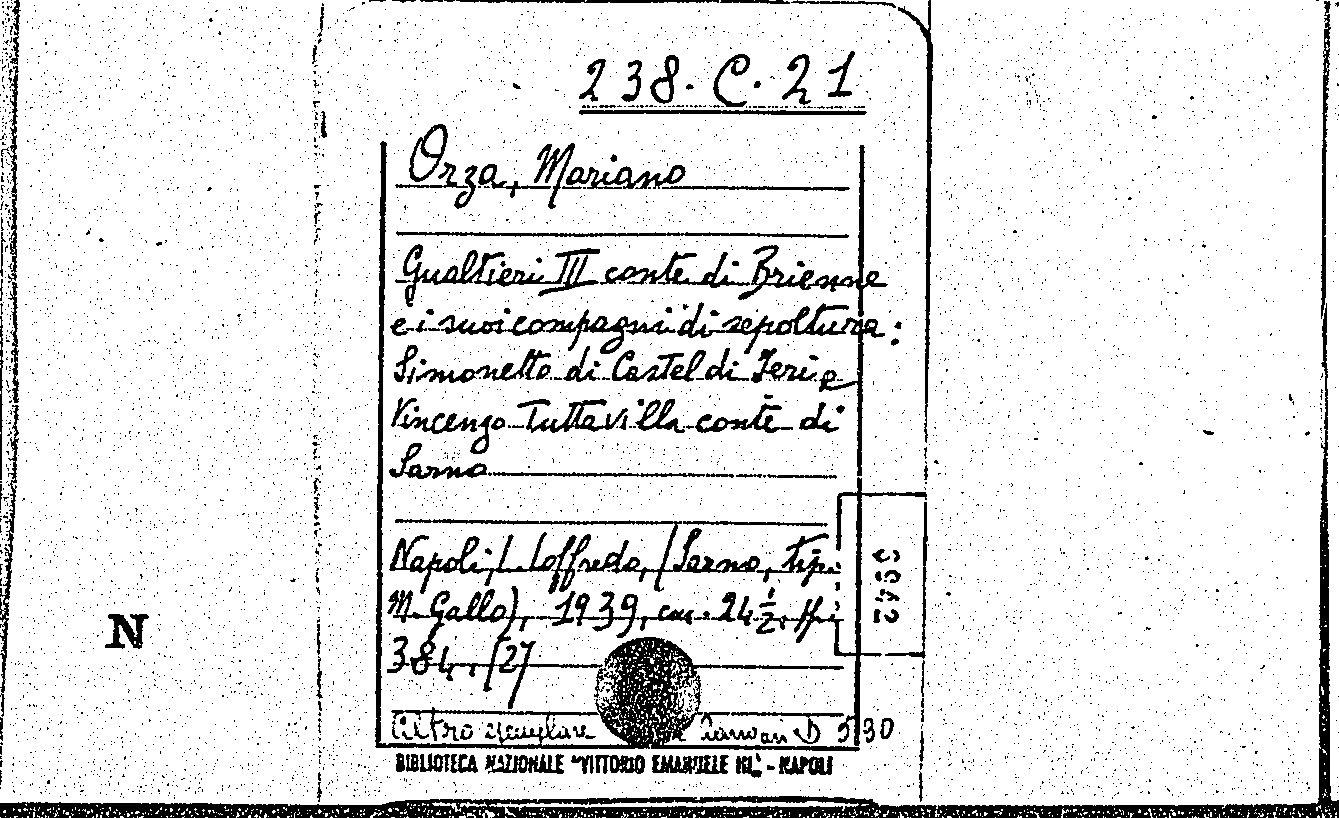 238. C. 21
Orza, Mariano
Gualtieri III conte di Brienne
e i suoi compagni di sepoltura:
Simonetto di Castel di Jeri e
Vincenzo Tuttavilla conte di
Sarno
Napoli, L. Loffredo, (Sarno, tip.
M. Gallo), 1939, cm. 24½, pp.
384, [2]
Altro esemplare D 530
BIBLIOTECA NAZIONALE "VITTORIO EMANUELE III" - NAPOLI
N